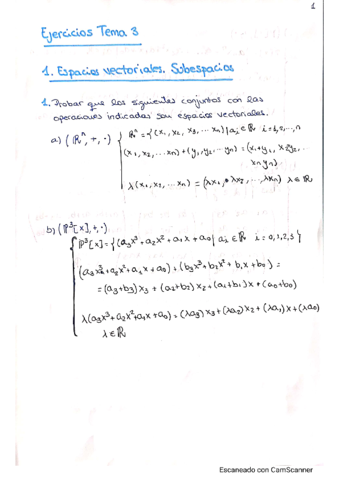 1
Ejercicios Tema 3
1. Espacios vectoriales. Subespacios
1. Probar que los siguientes conjuntos con las
operaciones indicadas son espacios vectoriales.
a) (ℝⁿ, +, ·) { ℝⁿ = {(x₁, x₂, x₃, ... xₙ) | aᵢ ∈ ℝ i = 1, 2, ..., n
(x₁, x₂, ... xₙ) + (y₁, y₂, ... yₙ) = (x₁+y₁, x₂y₂, ...
xₙyₙ)
λ(x₁, x₂, ... xₙ) = (λx₁, λx₂, ..., λxₙ) λ ∈ ℝ
b) (ℙ³[x], +, ·)
ℙ³[x] = {(a₃x³ + a₂x² + a₁x + a₀ | aᵢ ∈ ℝ i = 0, 1, 2, 3}
(a₃x³ + a₂x² + a₁x + a₀) + (b₃x³ + b₂x² + b₁x + b₀) =
= (a₃+b₃)x₃ + (a₂+b₂)x₂ + (a₁+b₁)x + (a₀+b₀)
λ(a₃x³ + a₂x² + a₁x + a₀) = (λa₃)x₃ + (λa₂)x₂ + (λa₁)x + (λa₀)
λ ∈ ℝ
Escaneado con CamScanner